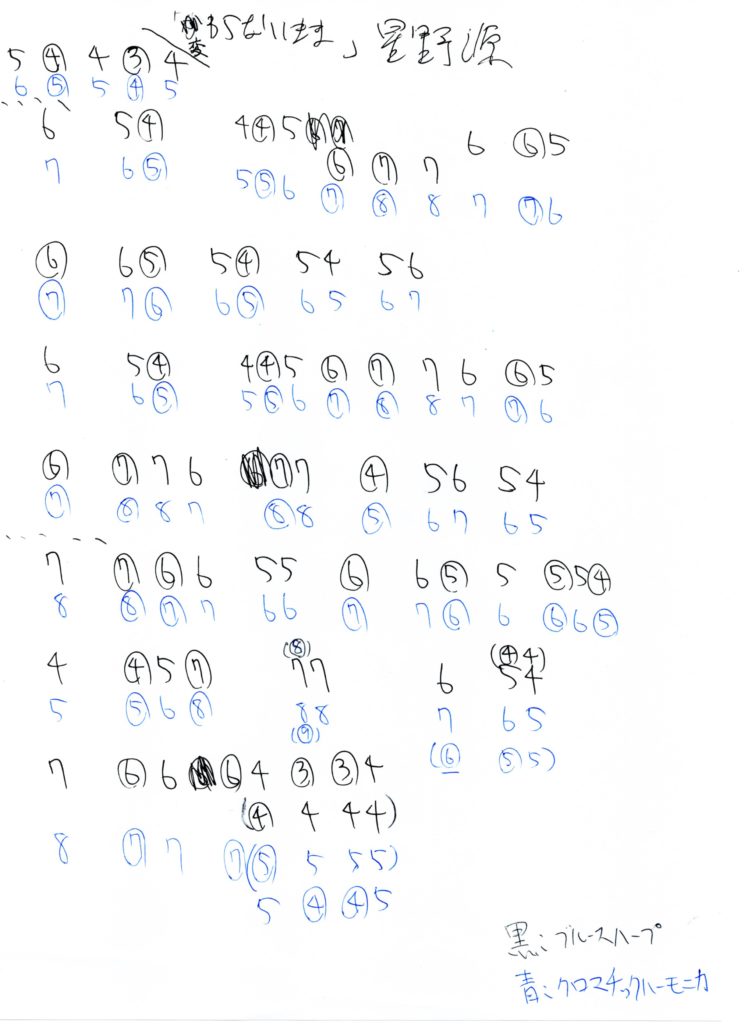 「変わらないまま」星野源
5 ④ 4 ③ 4
6 ⑤ 5 ④ 5
6 5④ 4④5 ⑥ ⑦ 7 6 ⑥5
7 6⑤ 5⑤6 ⑦ ⑧ 8 7 ⑦6
⑥ 6⑤ 5④ 54 56
⑦ 7⑥ 6⑤ 65 67
6 5④ 4④5 ⑥ ⑦ 7 6 ⑥5
7 6⑤ 5⑤6 ⑦ ⑧ 8 7 ⑦6
⑥ ⑦76 ⑦7 ④ 56 54
⑦ ⑧87 ⑧8 ⑤ 67 65
7 ⑦⑥6 55 ⑥ 6⑤ 5 ⑤5④
8 ⑧⑦7 66 ⑦ 7⑥ 6 ⑥6⑤
(⑧) (④4)
4 ④5⑦ 77 6 54
5 ⑤6⑧ 88 7 65
(⑨) (⑥ ⑤5)
7 ⑥6 ⑥4 ③ ③4
(④ 4 44)
8 ⑦7 ⑦(⑤ 5 55)
5 ④ ④5
黒:ブルースハープ
青:クロマチックハーモニカ